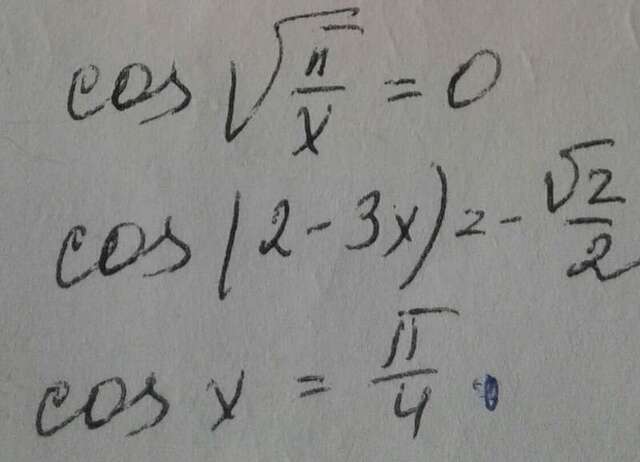 cos √(π/x) = 0
cos(2-3x) = -√2/2
cos x = π/4.